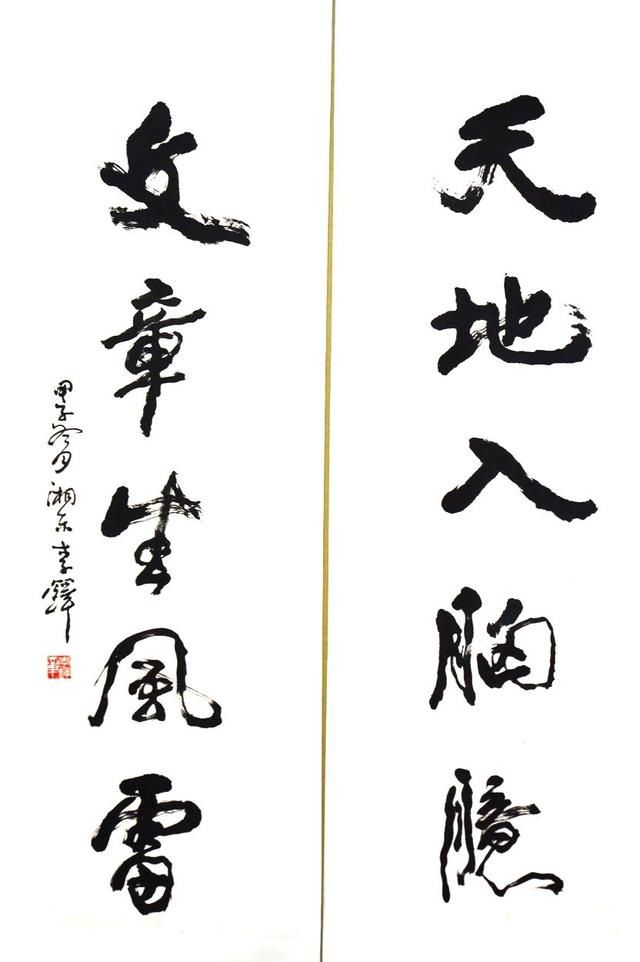 天地入胸臆
文章生风雷
甲子冬月湘东李铎